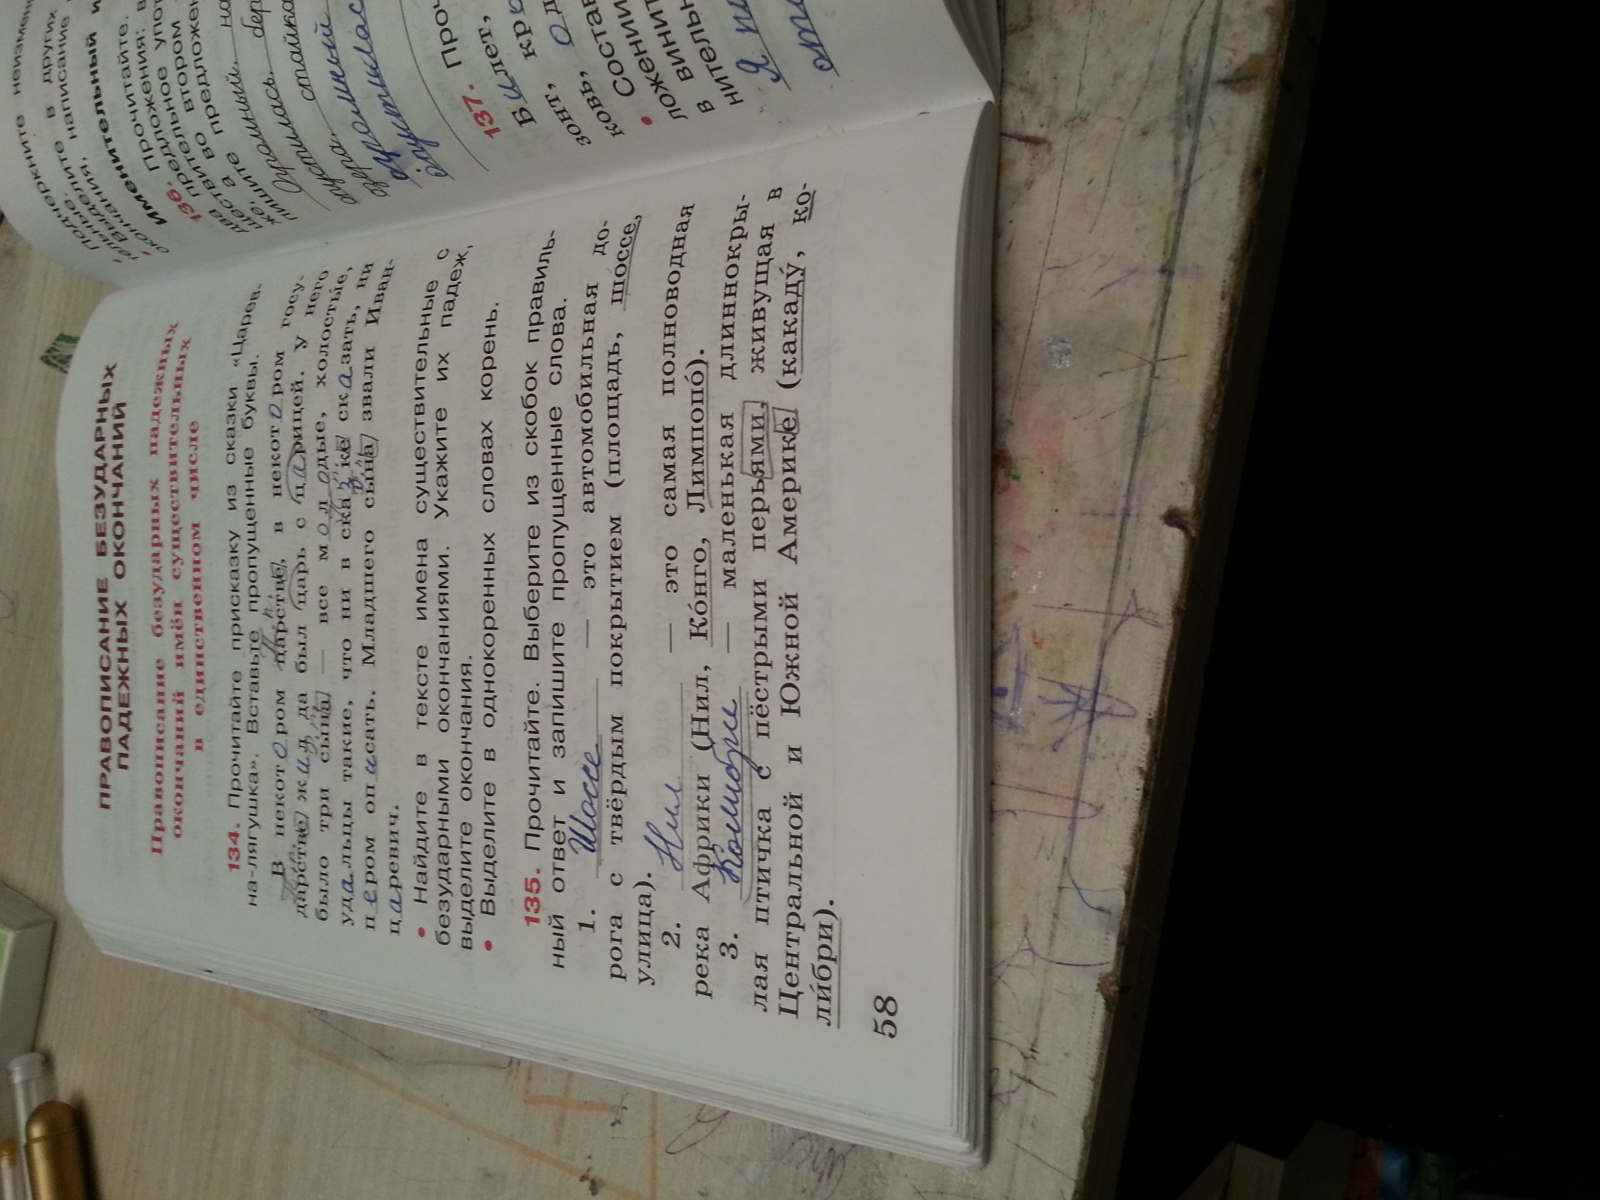 ПРАВОПИСАНИЕ БЕЗУДАРНЫХ
ПАДЕЖНЫХ ОКОНЧАНИЙ
Правописание безударных падежных
окончаний имён существительных
в единственном числе
134. Прочитайте присказку из сказки «Царев-
на-лягушка». Вставьте пропущенные буквы.
В некотором царстве, в некотором госу-
дарстве жил да был царь с царицей. у него
было три сына — все молодые, холостые,
удальцы такие, что ни в сказке сказать, ни
пером описать. Младшего сына звали Иван-
царевич.
• Найдите в тексте имена существительные с
безударными окончаниями. укажите их падеж,
выделите окончания.
• Выделите в однокоренных словах корень.
135. Прочитайте. Выберите из скобок правиль-
ный ответ и запишите пропущенные слова.
1. Шоссе — это автомобильная до-
рога с твёрдым покрытием (площадь, шоссе,
улица).
2. Нил — это самая полноводная
река Африки (Нил, Ко́нго, Лимпопо́).
3. Колибри — маленькая длиннокры-
лая птичка с пёстрыми перьями, живущая в
Центральной и Южной Америке (какаду́, ко-
ли́бри).
58
Подчеркните неизмен
• Выделите в других
окончания, написание
Именительный и
136. Прочитайте.
два предложения: в
ществительное упот
же, а во втором
пишите предложен
137. Проч
Билет, кр
зонт, од
ковь,
• Состав
ложени
в винит
нительн
Я